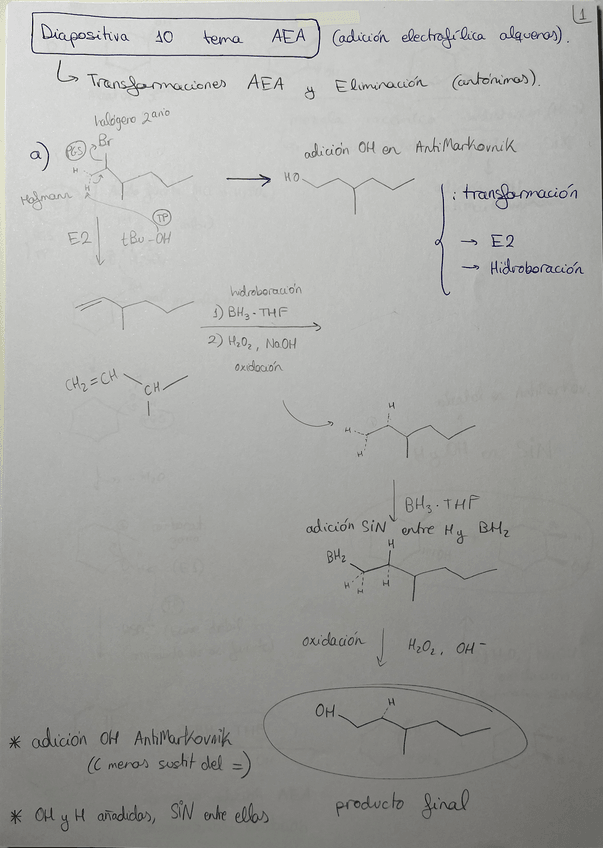 1
Diapositiva 10 tema AEA (adición electrofílica alquenos).
↳ Transformaciones AEA y Eliminación (antónimas).
halógeno 2ario
a)
GS
Br
H
H
Hofmann
E2
tBu-OH
TP
→
adición OH en AntiMarkovnik
HO
: transformación
→ E2
→ Hidroboración
hidroboración
1) BH₃·THF
2) H₂O₂, NaOH
oxidación
CH₂=CH
CH
H
H
H
BH₃·THF
adición SIN entre H y BH₂
BH₂
H
H
H
H
oxidación
H₂O₂, OH⁻
OH
H
* adición OH AntiMarkovnik
(C menos sustit del =)
producto final
* OH y H añadidas, SIN entre ellas